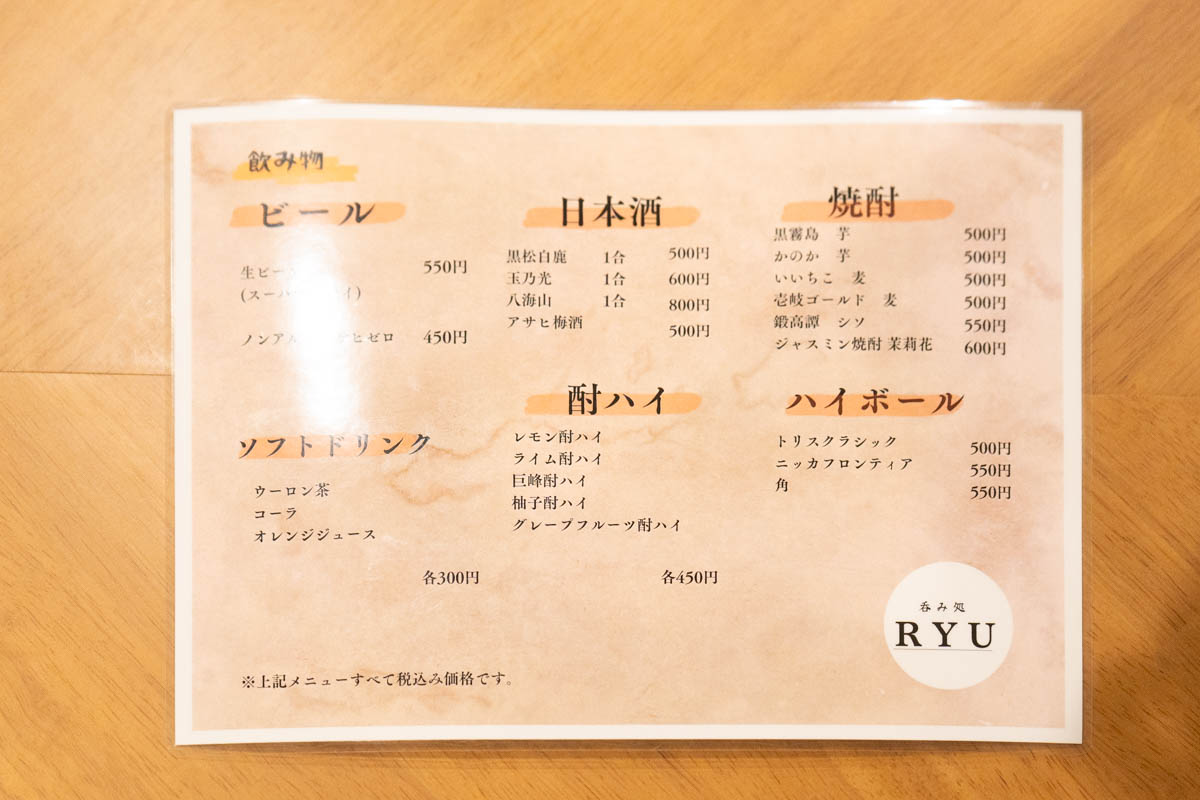 飲み物
ビール
生ビー
(スーパー イ)
550円
ノンアル ヒゼロ 450円
日本酒
黒松白鹿 1合 500円
玉乃光 1合 600円
八海山 1合 800円
アサヒ梅酒 500円
焼酎
黒霧島 芋 500円
かのか 芋 500円
いいちこ 麦 500円
壱岐ゴールド 麦 500円
鍛高譚 シソ 550円
ジャスミン焼酎 茉莉花 600円
ソフトドリンク
ウーロン茶
コーラ
オレンジジュース
各300円
酎ハイ
レモン酎ハイ
ライム酎ハイ
巨峰酎ハイ
柚子酎ハイ
グレープフルーツ酎ハイ
各450円
ハイボール
トリスクラシック 500円
ニッカフロンティア 550円
角 550円
※上記メニューすべて税込み価格です。
呑み処
RYU